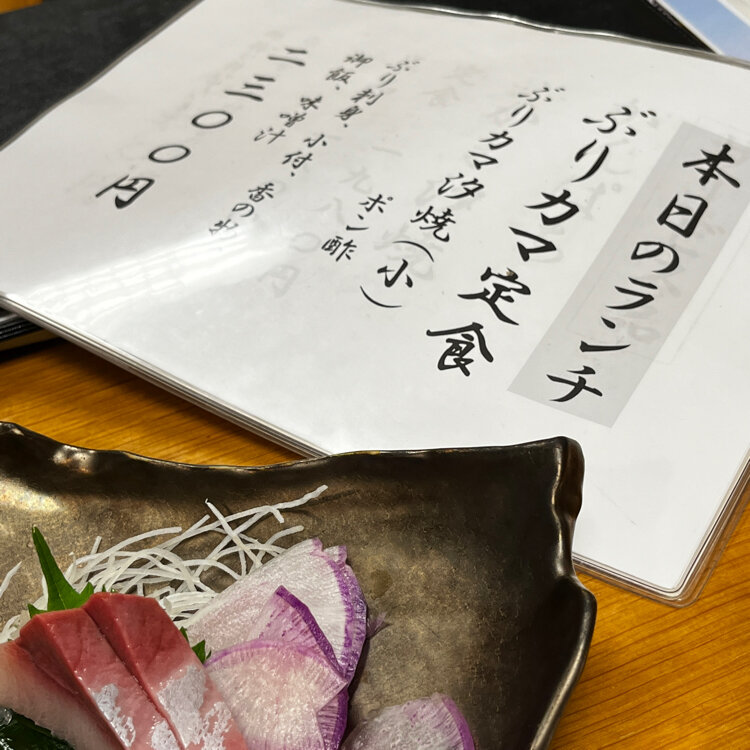 本日のランチ
ぶりカマ定食
ぶりカマ汐焼(小)
ポン酢
ぶり刺身、小付、香の物
御飯、味噌汁
二三〇〇円